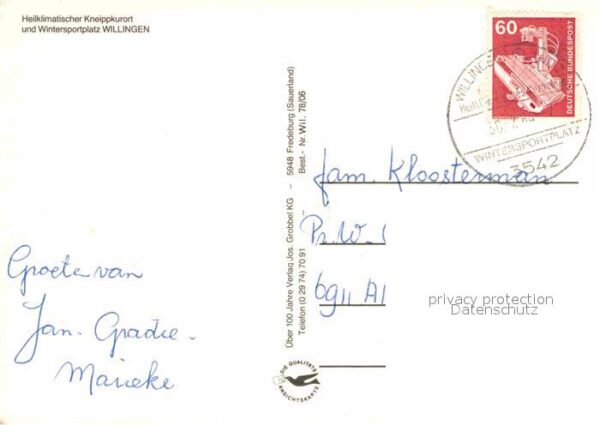 Heilklimatischer Kneippkurort
und Wintersportplatz WILLINGEN
Groete van
Jan. Gradie.
Marieke
Über 100 Jahre Verlag Jos. Grobbel KG – 5948 Fredeburg (Sauerland)
Telefon (0 29 74) 70 91 – Best.- Nr. Wil. 78/06
DIE QUALITÄTS
ANSICHTSKARTE
60
DEUTSCHE BUNDESPOST
WILLINGEN
WINTERSPORTPLATZ
3542
fam. Kloosterman
Pr. W.
6911 A
privacy protection
Datenschutz